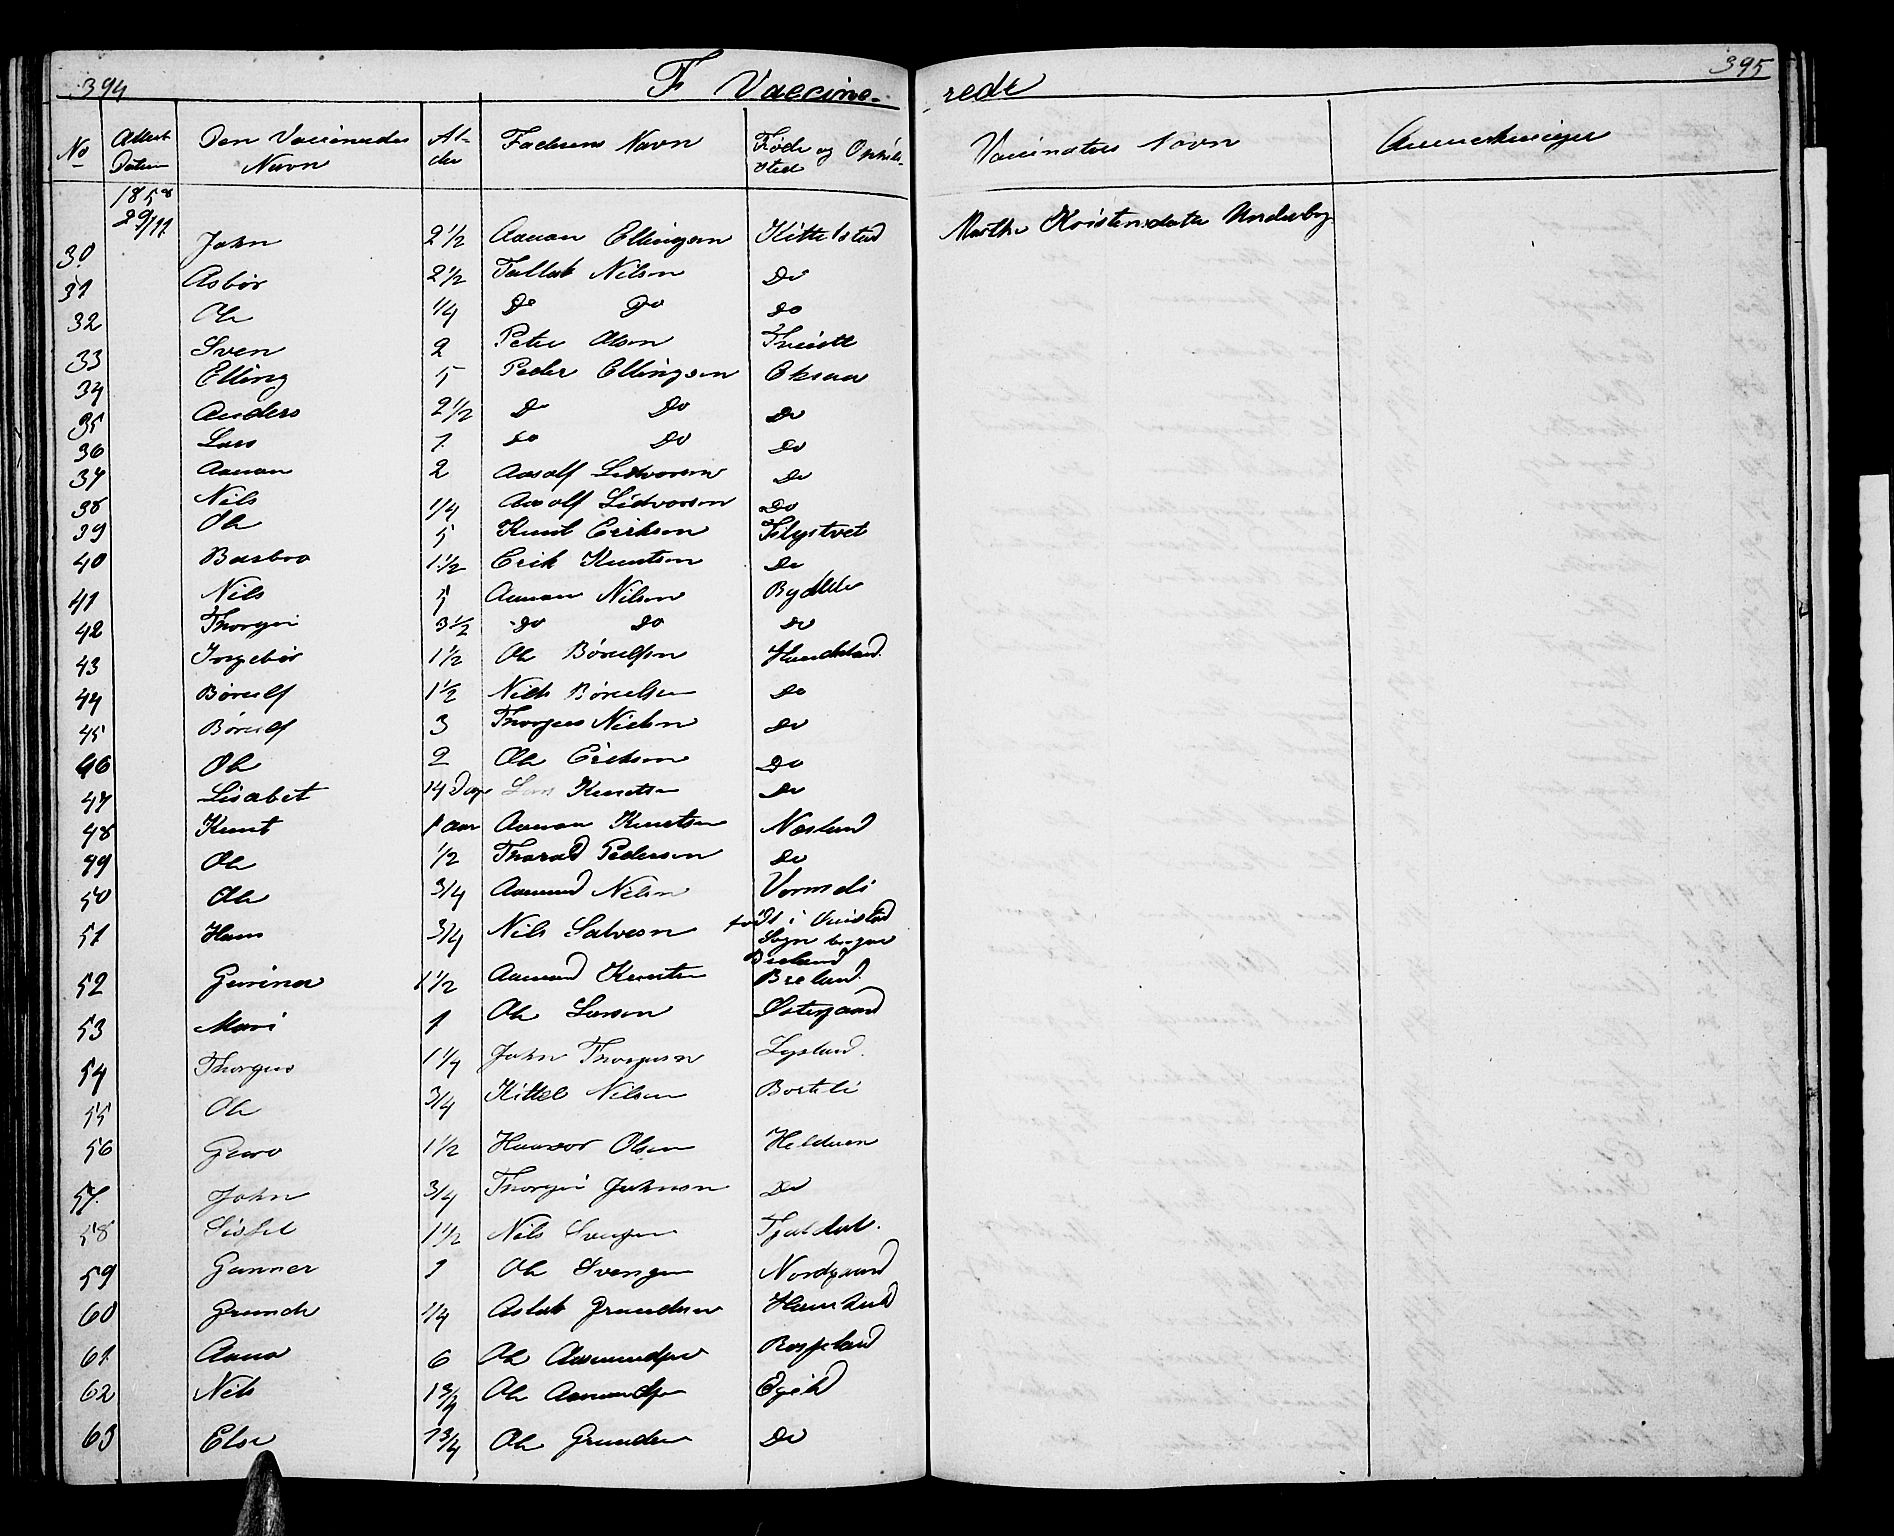 394
F Vaccine-
rede
395
No
Attest Datum
Den Vaccineredes Navn
Al-der
Faderens Navn
Føde og Opholds-sted
Vaccinators Navn
Anmerkninger
1858
29/11
30 John 2 1/2 Aanan Ellingsen Kittelstad Marthe Kristensdatter Underberg
31 Asbør 2 1/2 Tallak Nilsen Do
32 Ole 1/4 Do Do Do
33 Sven 2 Peter Olsen
34 Elling 5 Peder Ellingsen Oksaa
35 Anders 2 1/2 Do Do Do
36 Lars 1 Do Do Do
37 Aanan 2 Aasolf Lidvorsen Do
38 Nils 1/4 Aasolf Lidvorsen Do
39 Ole 5 Knut Eriksen Flystvet
40 Barbro 1 1/2 Erik Knutsen Do
41 Nils 5 Aanan Nilsen
42 Thorger 3 1/2 Do Do Do
43 Ingebør 1 1/2 Ole Børuflsen
44 Børulf 1 1/2 Nils Børulsen Do
45 Børulf 3 Thorgus Nielsen Do
46 Ole 2 Ole Eriksen Do
47 Lisabet 14 Dage Lars Knutsen Do
48 Knut 1 aar Aanan Knutsen Næsland
49 Ole 1/2 Tharald Pedersen Do
50 Ole 3/4 Aamund Nilsen Vormeli
51 Hans 3/4 Nils Salvesen født i
Sogn
Breland
52 Gurine 1 1/2 Aamund Knutsen Breland
53 Mari 1 Ole Larsen Østergaard
54 Thorgus 1 1/4 John Thorgusen Lysland
55 Ole 3/4 Kittel Nilsen Borteli
56 Guro 1 1/2 Haavor Olsen Helduen
57 John 3/4 Thorger Johnsen Do
58 Sissel 1 1/2 Nils Svengsen
59 Gunner 1 Ole Svengsen Nordgaard
60 Grunde 1/4 Aslak Grundesen
61 Anna 6 Ole Aasmundsen Røyseland
62 Nils 1 3/4 Ole Aanundsen
63 Else 1 3/4 Ole Grundesen Do